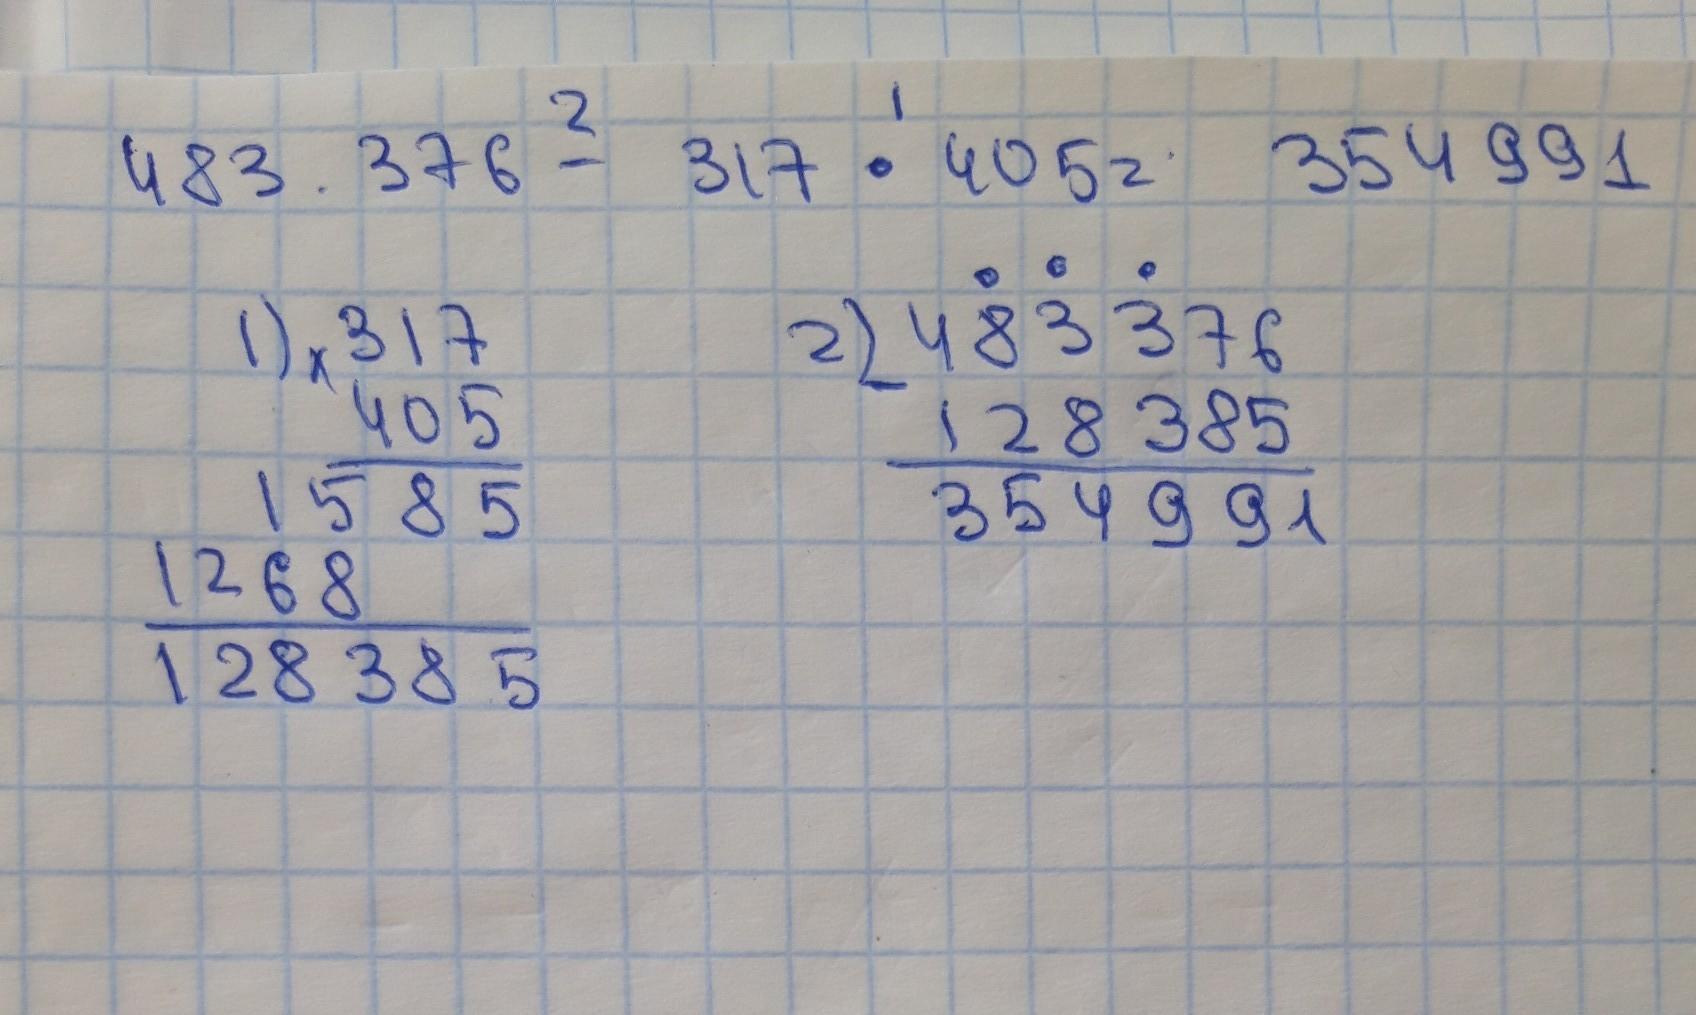 483.376 - 317 • 405 = 354991
2 1
1) x 317
405
1585
1268
128385
2) - 483376
128385
354991